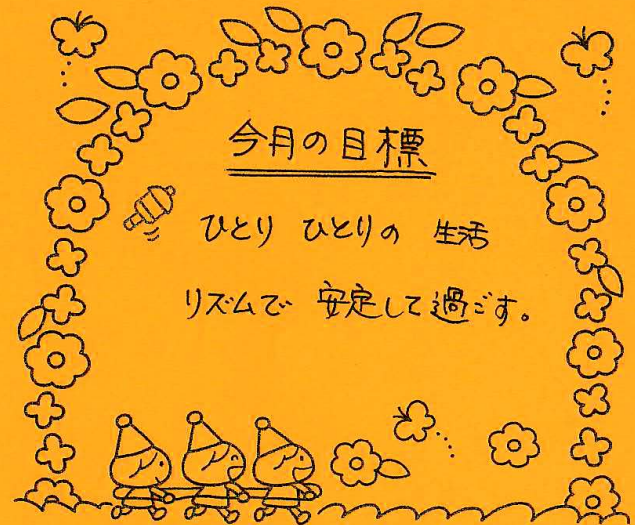 今月の目標
ひとり ひとりの 生活
リズムで 安定して過ごす。